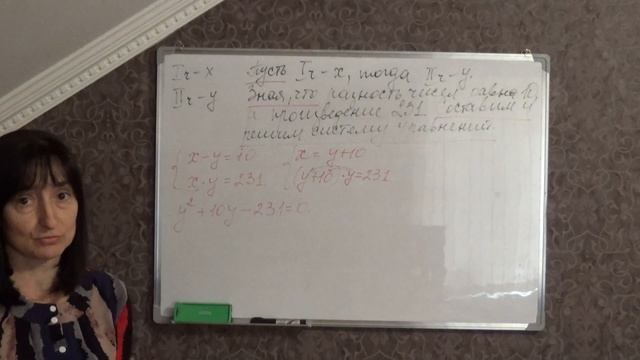 Iч - x Пусть Iч - x, тогда IIч - y.
IIч - y Зная, что разность чисел равна 10,
а произведение 231 составим и
решим систему уравнений.
x - y = 10 x = y + 10
x · y = 231 (y + 10) · y = 231
y² + 10y - 231 = 0